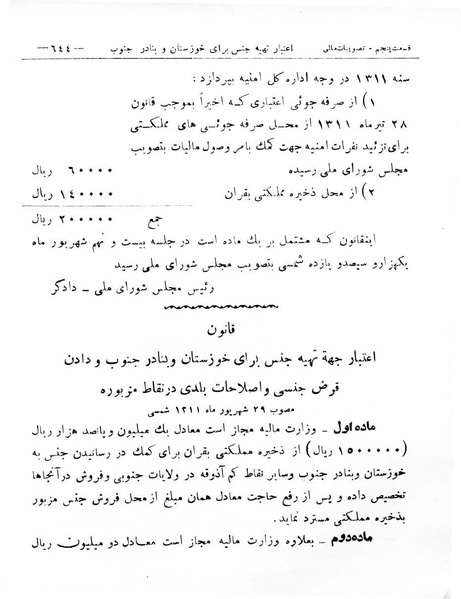 قسمت پنجم - تصویبات مالی    اعتبار تهیه جنس برای خوزستان و بنادر جنوب    —٦٤٤—
سنه ۱۳۱۱ در وجه اداره کل امنیه بپردازد:
۱) از صرفه جوئی اعتباری که اخیراً بموجب قانون
۲۸ تیرماه ۱۳۱۱ از محل صرفه جوئی های مملکتی
برای تزئید نفرات امنیه جهت کمك بامر وصول مالیات بتصویب
مجلس شورای ملی رسیده    ۶۰۰۰۰ ریال
۲) از محل ذخیره مملکتی بقران    ۱۴۰۰۰۰ ریال
جمع    ۲۰۰۰۰۰ ریال
اینقانون که مشتمل بر یك ماده است در جلسه بیست و نهم شهریور ماه
یکهزارو سیصدو یازده شمسی بتصویب مجلس شورای ملی رسید
رئیس مجلس شورای ملی - دادگر
قانون
اعتبار جهة تهیه جنس برای خوزستان و بنادر جنوب و دادن
قرض جنسی و اصلاحات بلدی در نقاط مزبوره
مصوب ۲۹ شهریور ماه ۱۳۱۱ شمسی
ماده اول - وزارت مالیه مجاز است معادل یك میلیون و پانصد هزار ریال
(۱۵۰۰۰۰۰ ریال) از ذخیره مملکتی بقران برای کمك در رسانیدن جنس به
خوزستان و بنادر جنوب و سایر نقاط کم آذوقه در ولایات جنوبی و فروش در آنجاها
تخصیص داده و پس از رفع حاجت معادل همان مبلغ از محل فروش جنس مزبور
بذخیره مملکتی مسترد نماید.
ماده دوم - بعلاوه وزارت مالیه مجاز است معادل دو میلیون ریال